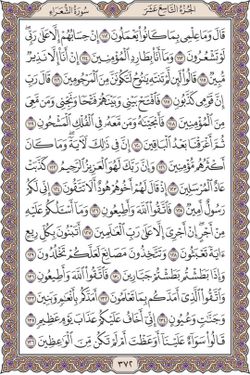 الجُزءُ التَّاسِعَ عَشَرَ سُورَةُ الشُّعَرَاءِ
قَالَ وَمَا عِلْمِي بِمَا كَانُوا۟ يَعْمَلُونَ ١١٢ إِنْ حِسَابُهُمْ إِلَّا عَلَىٰ رَبِّي
لَوْ تَشْعُرُونَ ١١٣ وَمَآ أَنَا۠ بِطَارِدِ ٱلْمُؤْمِنِينَ ١١٤ إِنْ أَنَا۠ إِلَّا نَذِيرٌ
مُّبِينٌ ١١٥ قَالُوا۟ لَئِن لَّمْ تَنتَهِ يَٰنُوحُ لَتَكُونَنَّ مِنَ ٱلْمَرْجُومِينَ ١١٦ قَالَ رَبِّ
إِنَّ قَوْمِي كَذَّبُونِ ١١٧ فَٱفْتَحْ بَيْنِي وَبَيْنَهُمْ فَتْحًا وَنَجِّنِي وَمَن مَّعِيَ
مِنَ ٱلْمُؤْمِنِينَ ١١٨ فَأَنجَيْنَٰهُ وَمَن مَّعَهُۥ فِي ٱلْفُلْكِ ٱلْمَشْحُونِ ١١٩
ثُمَّ أَغْرَقْنَا بَعْدُ ٱلْبَاقِينَ ١٢٠ إِنَّ فِي ذَٰلِكَ لَءَايَةً وَمَا كَانَ
أَكْثَرُهُم مُّؤْمِنِينَ ١٢١ وَإِنَّ رَبَّكَ لَهُوَ ٱلْعَزِيزُ ٱلرَّحِيمُ ١٢٢ كَذَّبَتْ
عَادٌ ٱلْمُرْسَلِينَ ١٢٣ إِذْ قَالَ لَهُمْ أَخُوهُمْ هُودٌ أَلَا تَتَّقُونَ ١٢٤ إِنِّي لَكُمْ
رَسُولٌ أَمِينٌ ١٢٥ فَٱتَّقُوا۟ ٱللَّهَ وَأَطِيعُونِ ١٢٦ وَمَآ أَسْـَٔلُكُمْ عَلَيْهِ
مِنْ أَجْرٍ إِنْ أَجْرِيَ إِلَّا عَلَىٰ رَبِّ ٱلْعَٰلَمِينَ ١٢٧ أَتَبْنُونَ بِكُلِّ رِيعٍ
ءَايَةً تَعْبَثُونَ ١٢٨ وَتَتَّخِذُونَ مَصَانِعَ لَعَلَّكُمْ تَخْلُدُونَ ١٢٩
وَإِذَا بَطَشْتُم بَطَشْتُمْ جَبَّارِينَ ١٣٠ فَٱتَّقُوا۟ ٱللَّهَ وَأَطِيعُونِ ١٣١
وَٱتَّقُوا۟ ٱلَّذِيٓ أَمَدَّكُم بِمَا تَعْلَمُونَ ١٣٢ أَمَدَّكُم بِأَنْعَٰمٍ وَبَنِينَ ١٣٣
وَجَنَّٰتٍ وَعُيُونٍ ١٣٤ إِنِّيٓ أَخَافُ عَلَيْكُمْ عَذَابَ يَوْمٍ عَظِيمٍ ١٣٥
قَالُوا۟ سَوَآءٌ عَلَيْنَآ أَوَعَظْتَ أَمْ لَمْ تَكُن مِّنَ ٱلْوَٰعِظِينَ ١٣٦
٣٧٢